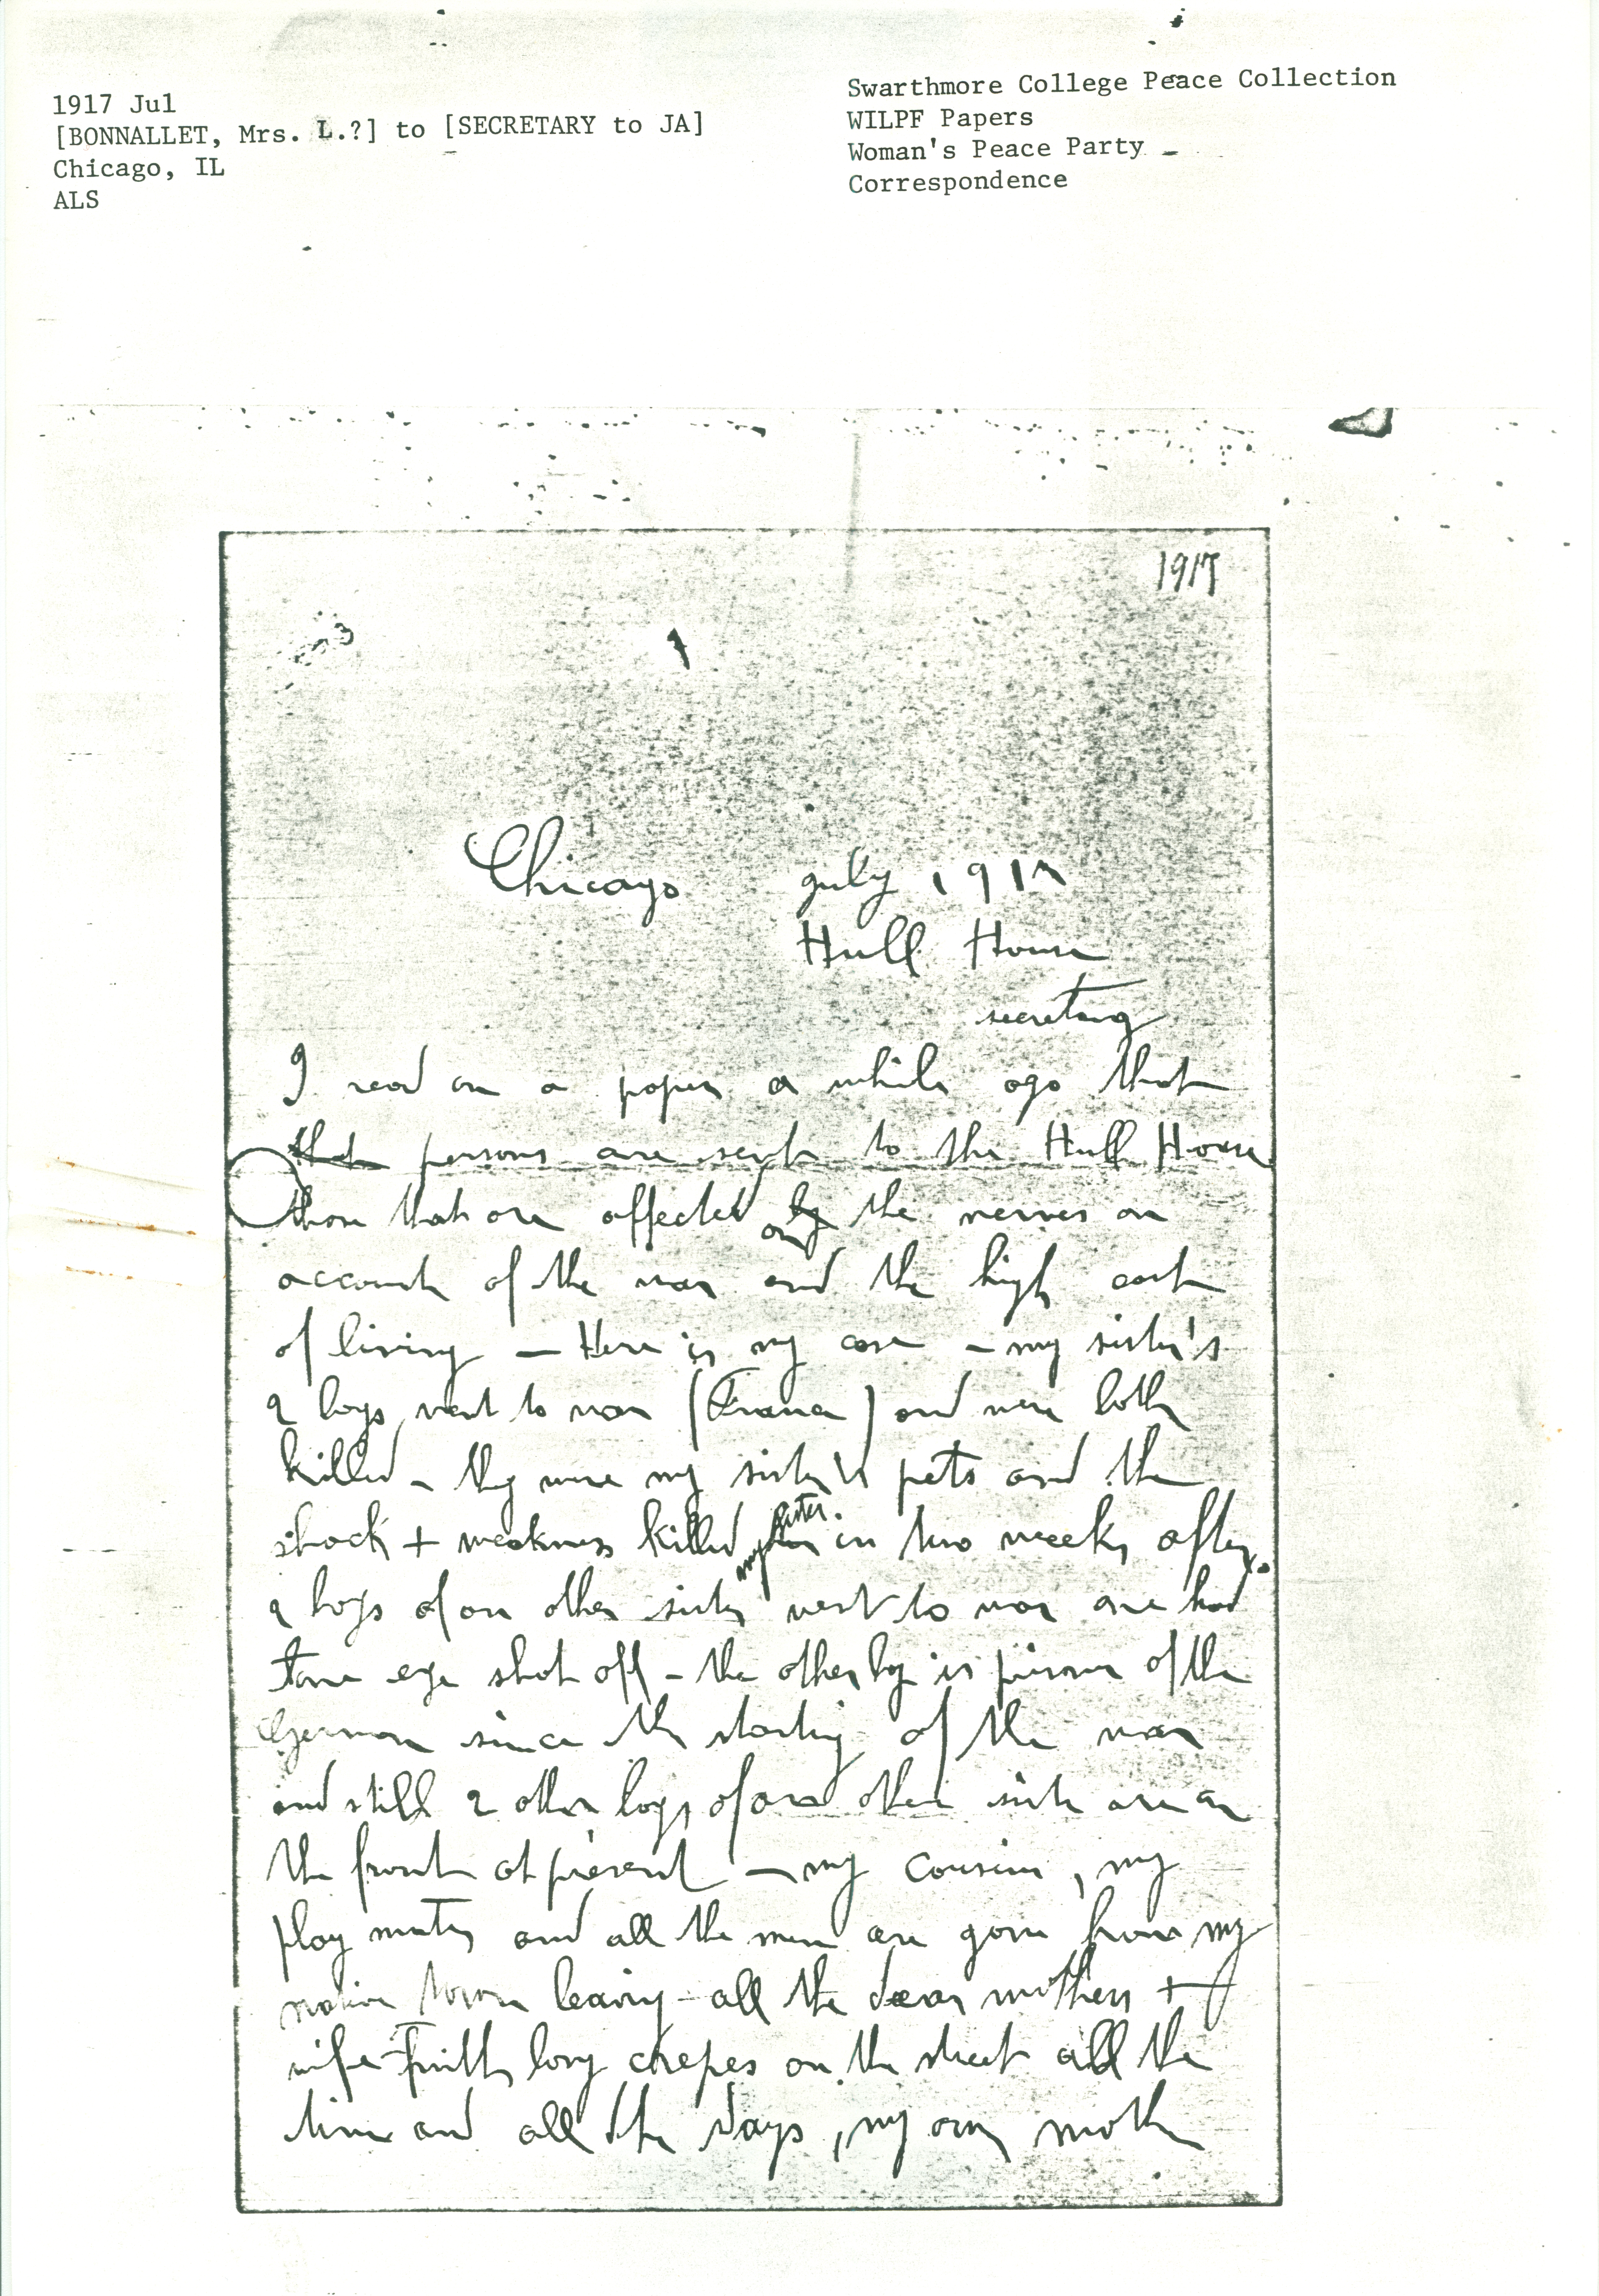 1917 Jul
[BONNALLET, Mrs. L.?] to [SECRETARY to JA]
Chicago, IL
ALS
Swarthmore College Peace Collection
WILPF Papers
Woman's Peace Party -
Correspondence
1917
Chicago july 1917
Hull House
secretary
I read on a paper a while ago that
that persons are sent to the Hull House
those that are affected by the nerves on
account of the war and the high cost
of living - Here is my case - my sister's
2 boys went to war (France) and were both
killed - they were my sister's pets and the
shock + weakness killed my sister in two weeks after.
2 boys of on other sister went to war one had
one eye shot off - the other boy is prisoner of the
German since the starting of the war
and still 2 other boys of one other sister are on
the front at present - my cousins, my
play mates and all the men are gone from my
native town leaving all the dear mothers +
wife with long crepes on the street all the
time and all the days, my own mother